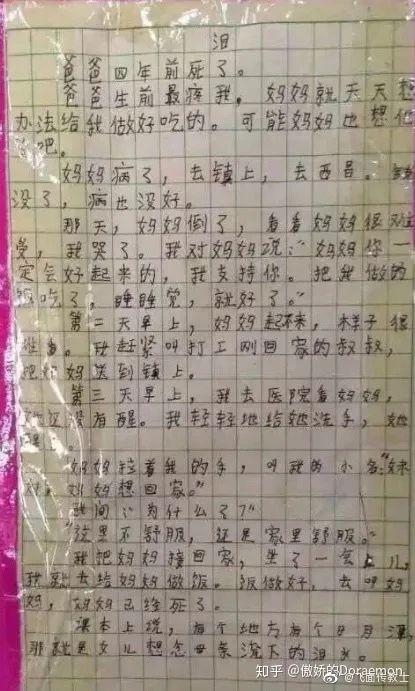 泪
爸爸四年前死了。
爸爸生前最疼我，妈妈就天天想
办法给我做好吃的。可能妈妈也想他
了吧。
妈妈病了，去镇上，去西昌。钱
没了，病也没好。
那天，妈妈倒了，看看妈妈很难
受，我哭了。我对妈妈说：“妈妈你一
定会好起来的，我支持你。把我做的
饭吃了，睡睡觉，就好了。”
第二天早上，妈妈起不来，样子很
难看。我赶紧叫打工刚回家的叔叔，
把妈妈送到镇上。
第三天早上，我去医院看妈妈，
她还没有醒。我轻轻地给她洗手，她
醒了。
妈妈拉着我的手，叫我的小名：“妹
妹，妈妈想回家。”
我问：“为什么了？”
“这里不舒服，还是家里舒服。”
我把妈妈接回家，坐了一会儿，
我就去给妈妈做饭。饭做好，去叫妈
妈，妈妈已经死了。
课本上说，有个地方有个日月潭，
那就是女儿想念母亲流下的泪水。
知乎 @傲娇的Doraemon
@飞面传教士